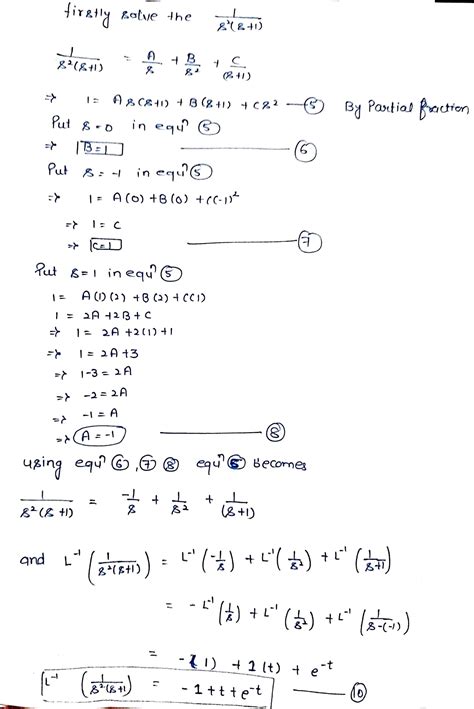 firstly solve the 1/s²(s+1)
1/s²(s+1) = A/s + B/s² + C/(s+1)
=> 1 = A s(s+1) + B(s+1) + Cs² — ⑤ By Partial fraction
Put s=0 in equⁿ ⑤
=> B=1 — ⑥
Put s=-1 in equⁿ ⑤
=> 1 = A(0) + B(0) + C(-1)²
=> 1 = C
=> C=1 — ⑦
Put s=1 in equⁿ ⑤
1 = A(1)(2) + B(2) + C(1)
1 = 2A + 2B + C
=> 1 = 2A + 2(1) + 1
=> 1 = 2A + 3
=> 1-3 = 2A
=> -2 = 2A
=> -1 = A
=> A = -1 — ⑧
using equⁿ ⑥, ⑦ ⑧ equⁿ ⑤ becomes
1/s²(s+1) = -1/s + 1/s² + 1/(s+1)
and L⁻¹(1/s²(s+1)) = L⁻¹(-1/s) + L⁻¹(1/s²) + L⁻¹(1/s+1)
= -L⁻¹(1/s) + L⁻¹(1/s²) + L⁻¹(1/s-(-1))
= -(1) + 1(t) + e^-t
L⁻¹(1/s²(s+1)) = -1+t+e^-t — ⑩